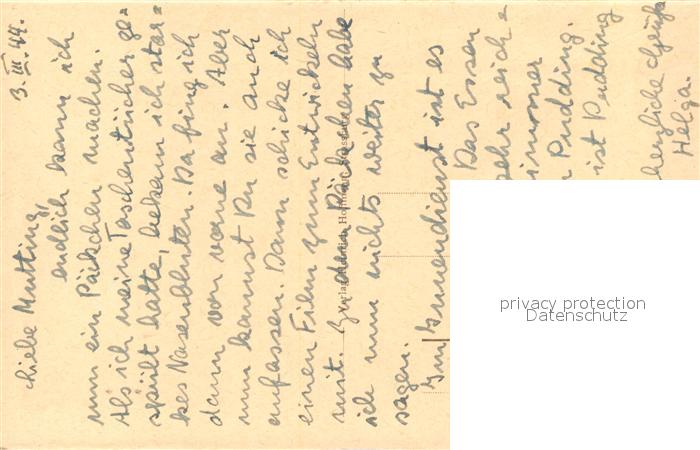 3. III. 44.
Liebe Mutting,
endlich kann ich
nun ein Päckchen machen.
Als ich meine Taschentücher ge=
spült hatte, bekam ich star=
kes Nasenbluten. Da fing ich
dann von vorne an. Aber
nun kannst Du sie auch
anfassen. Dann schicke ich
einen Film zum Entwickeln
mit. Zu dem Päckchen habe
ich nun nichts weiter zu
sagen.
Im Innendienst ist es
Das Essen
sehr reich=
immer
Pudding.
ist Pudding
herzliche Grüße
Helga.
Verlag
privacy protection
Datenschutz